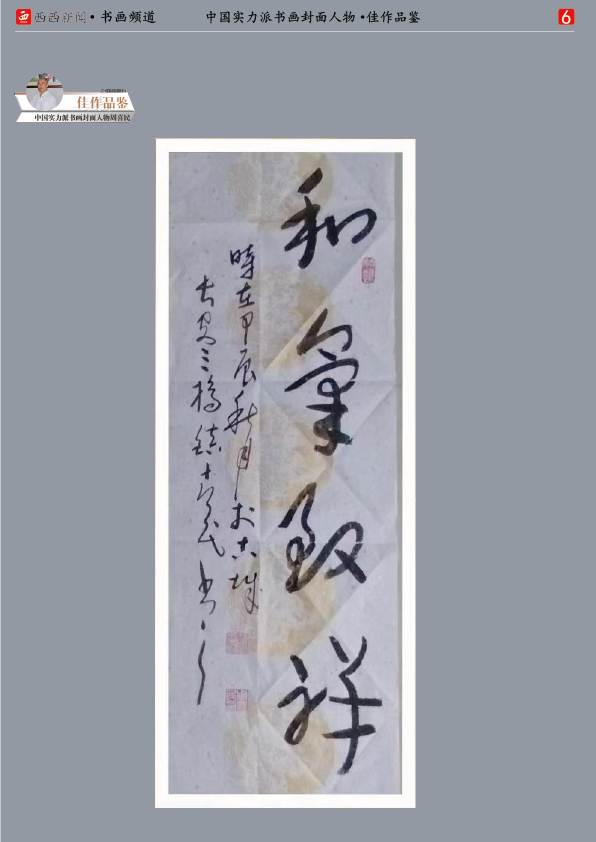 西西新闻·书画频道
中国实力派书画封面人物·佳作品鉴
6
佳作品鉴
中国实力派书画封面人物周喜民
和氣致祥
時在甲辰秋月於古城
长安三桥镇喜民书